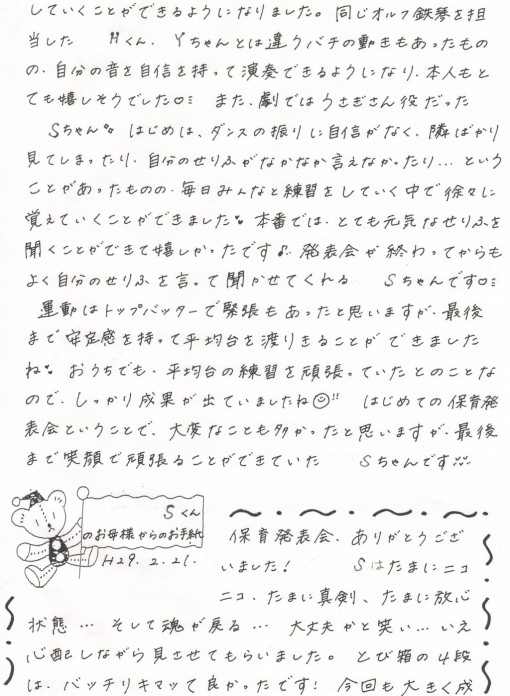 していくことができるようになりました。同じオルフ鉄琴を担
当した Hくん、Yちゃんとは違うバチの動きもあったもの
の、自分の音を自信を持って演奏できるようになり、本人もと
ても嬉しそうでした♡ また、劇ではうさぎさん役だった
Sちゃん はじめは、ダンスの振りに自信がなく、隣ばかり
見てしまったり、自分のせりふがなかなか言えなかったり…という
ことがあったものの、毎日みんなと練習をしていく中で徐々に
覚えていくことができました 本番では、とても元気なせりふを
聞くことができて嬉しかったです♪ 発表会が終わってからも
よく自分のせりふを言って聞かせてくれる Sちゃんです♡
運動はトップバッターで緊張もあったと思いますが、最後
まで安定感を持って平均台を渡りきることができました
ね おうちでも、平均台の練習を頑張っていたとのことな
ので、しっかり成果が出ていましたね☺!! はじめての保育発
表会ということで、大変なことも多かったと思いますが、最後
まで笑顔で頑張ることができていた Sちゃんです
Sくん
のお母様からのお手紙
H29.2.21.
保育発表会、ありがとうござ
いました! Sはたまにニコ
ニコ、たまに真剣、たまに放心
状態… そして魂が戻る… 大丈夫かと笑い…いえ
心配しながら見させてもらいました。とび箱の4段
は、バッチリキマッて良かったです! 今回も大きく成